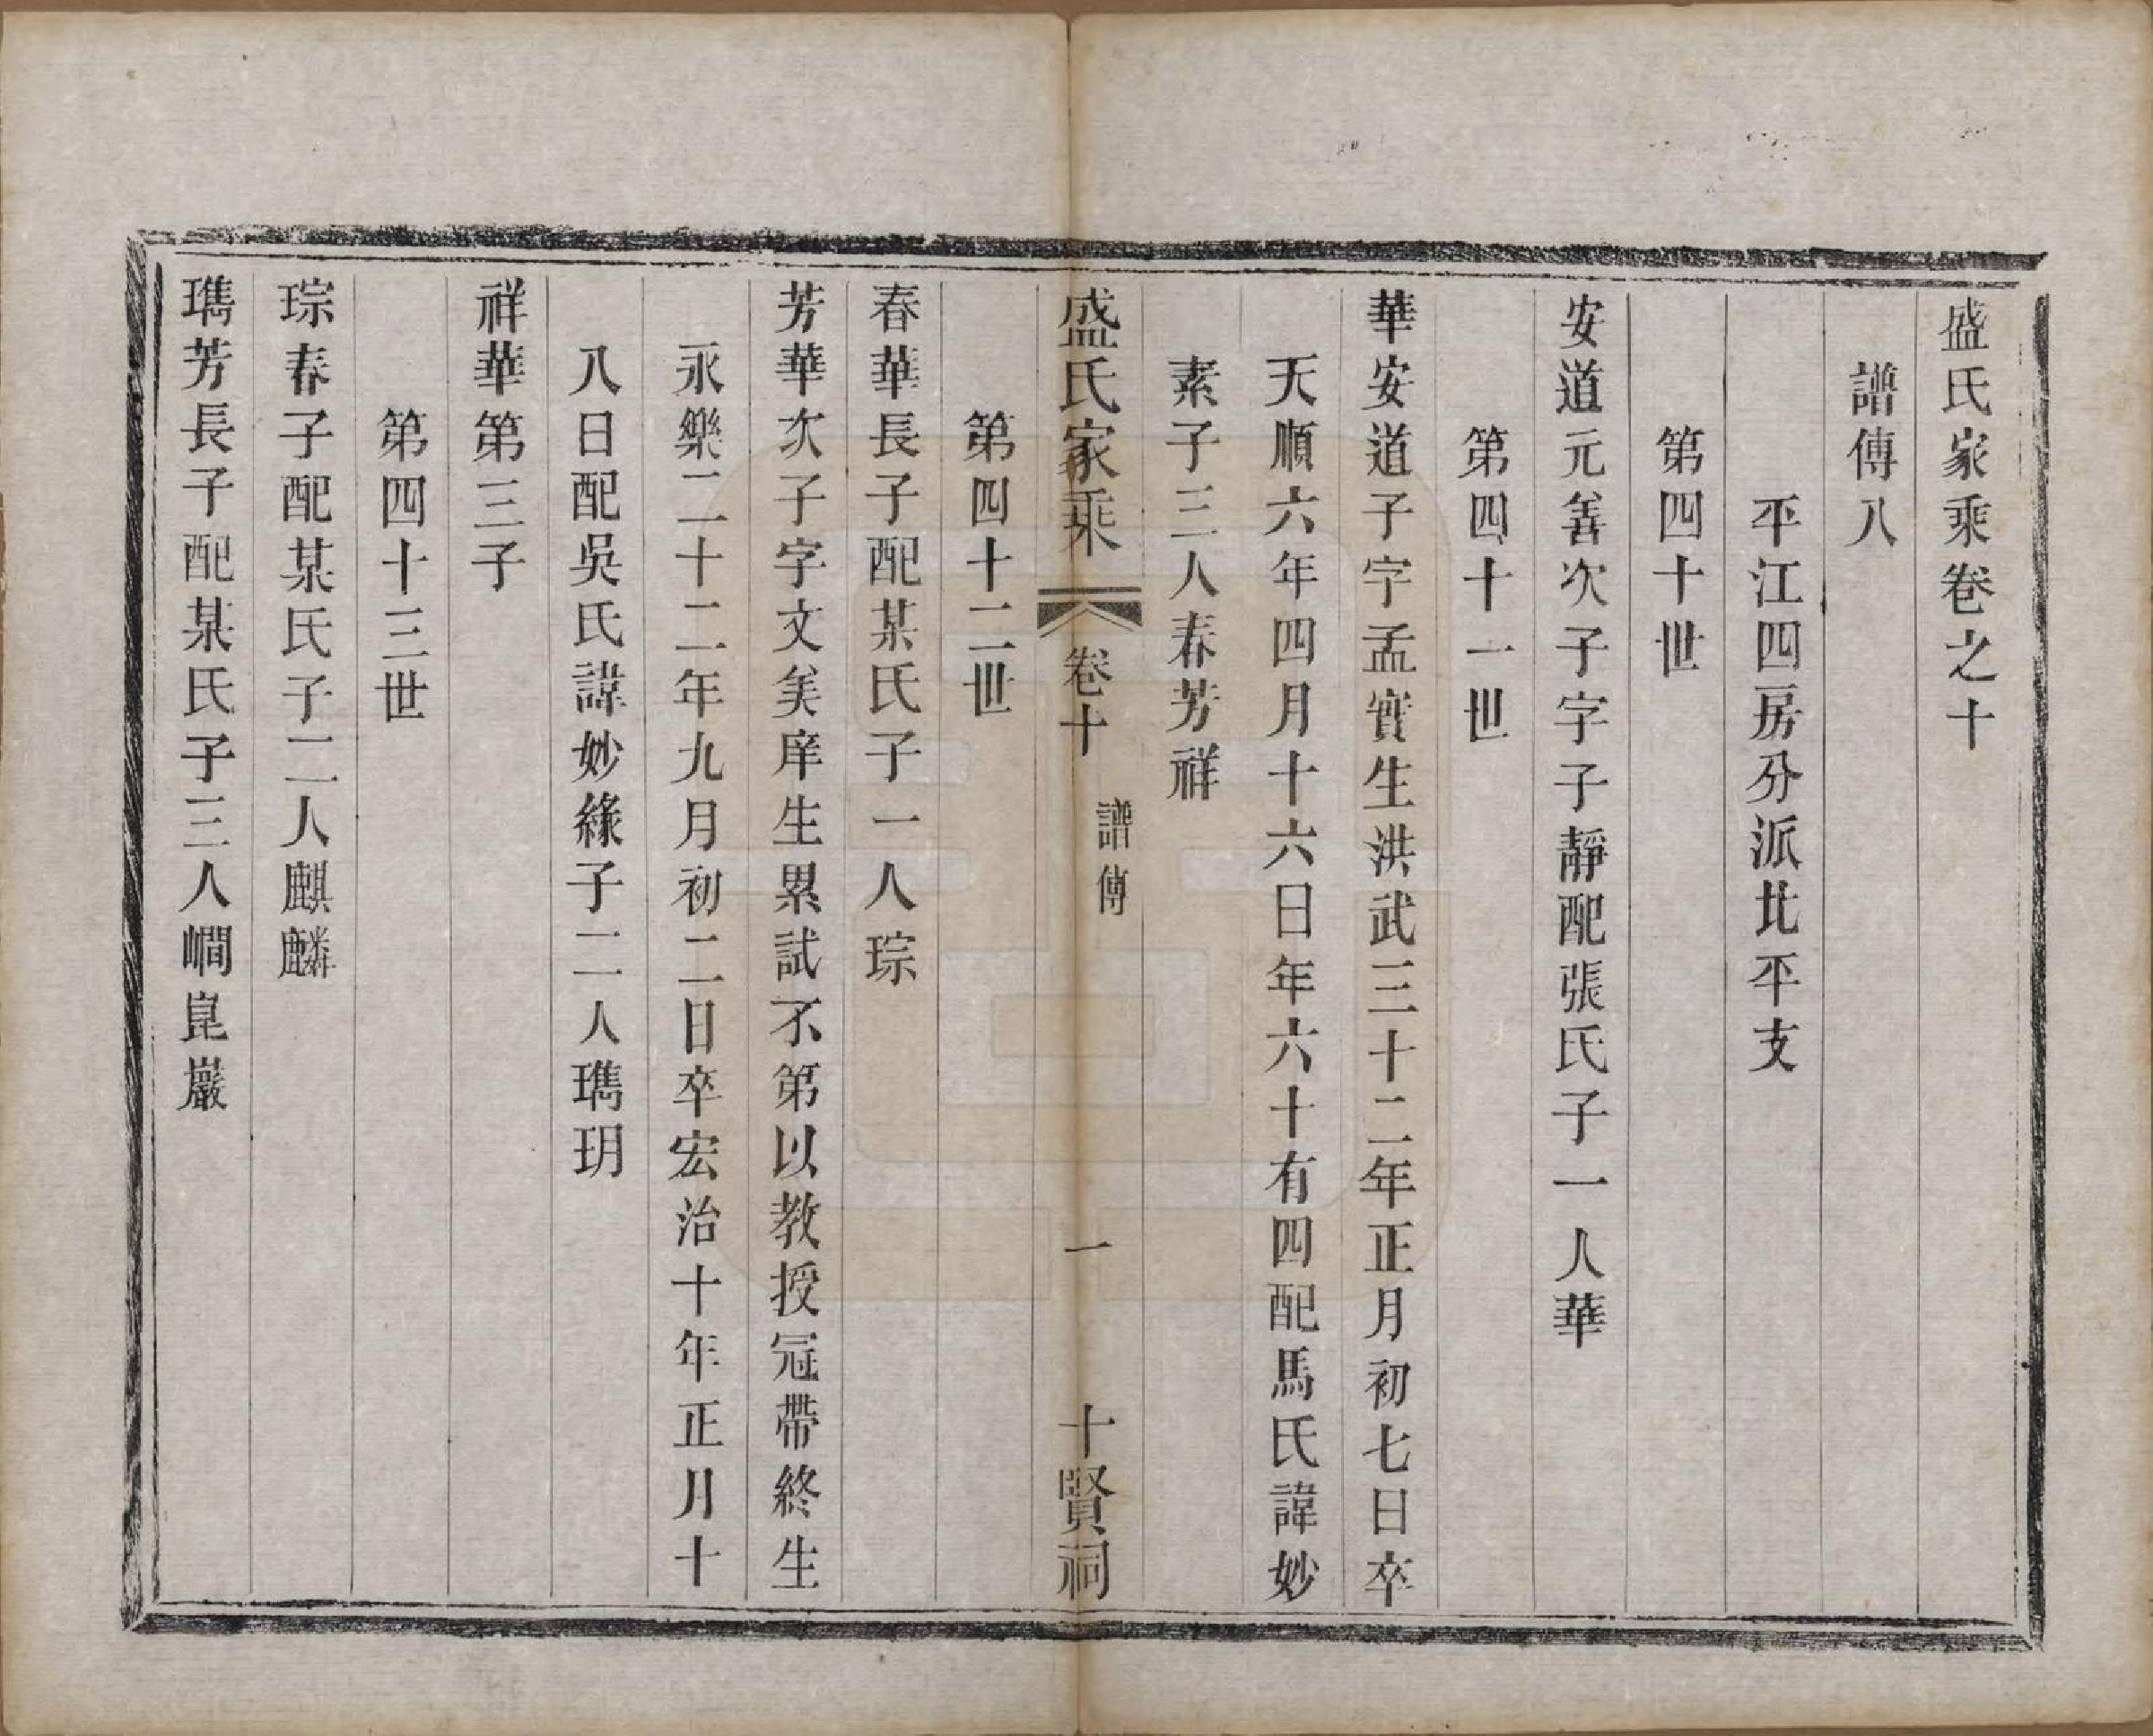 盛氏家乘卷之十
譜傳八
平江四房分派北平支
第四十世
安道元善次子字子靜配張氏子一人華
第四十一世
華安道子字孟實生洪武三十二年正月初七日卒
天順六年四月十六日年六十有四配馬氏諱妙
素子三人春芳祥
盛氏家乘 卷十 譜傳 一 十賢祠
第四十二世
春華長子配某氏子一人琮
芳華次子字文美庠生累試不第以教授冠帶終生
永樂二十二年九月初二日卒宏治十年正月十
八日配吳氏諱妙緣子二人瓗玥
祥華第三子
第四十三世
琮春子配某氏子二人麒麟
瓗芳長子配某氏子三人㟨崑巖